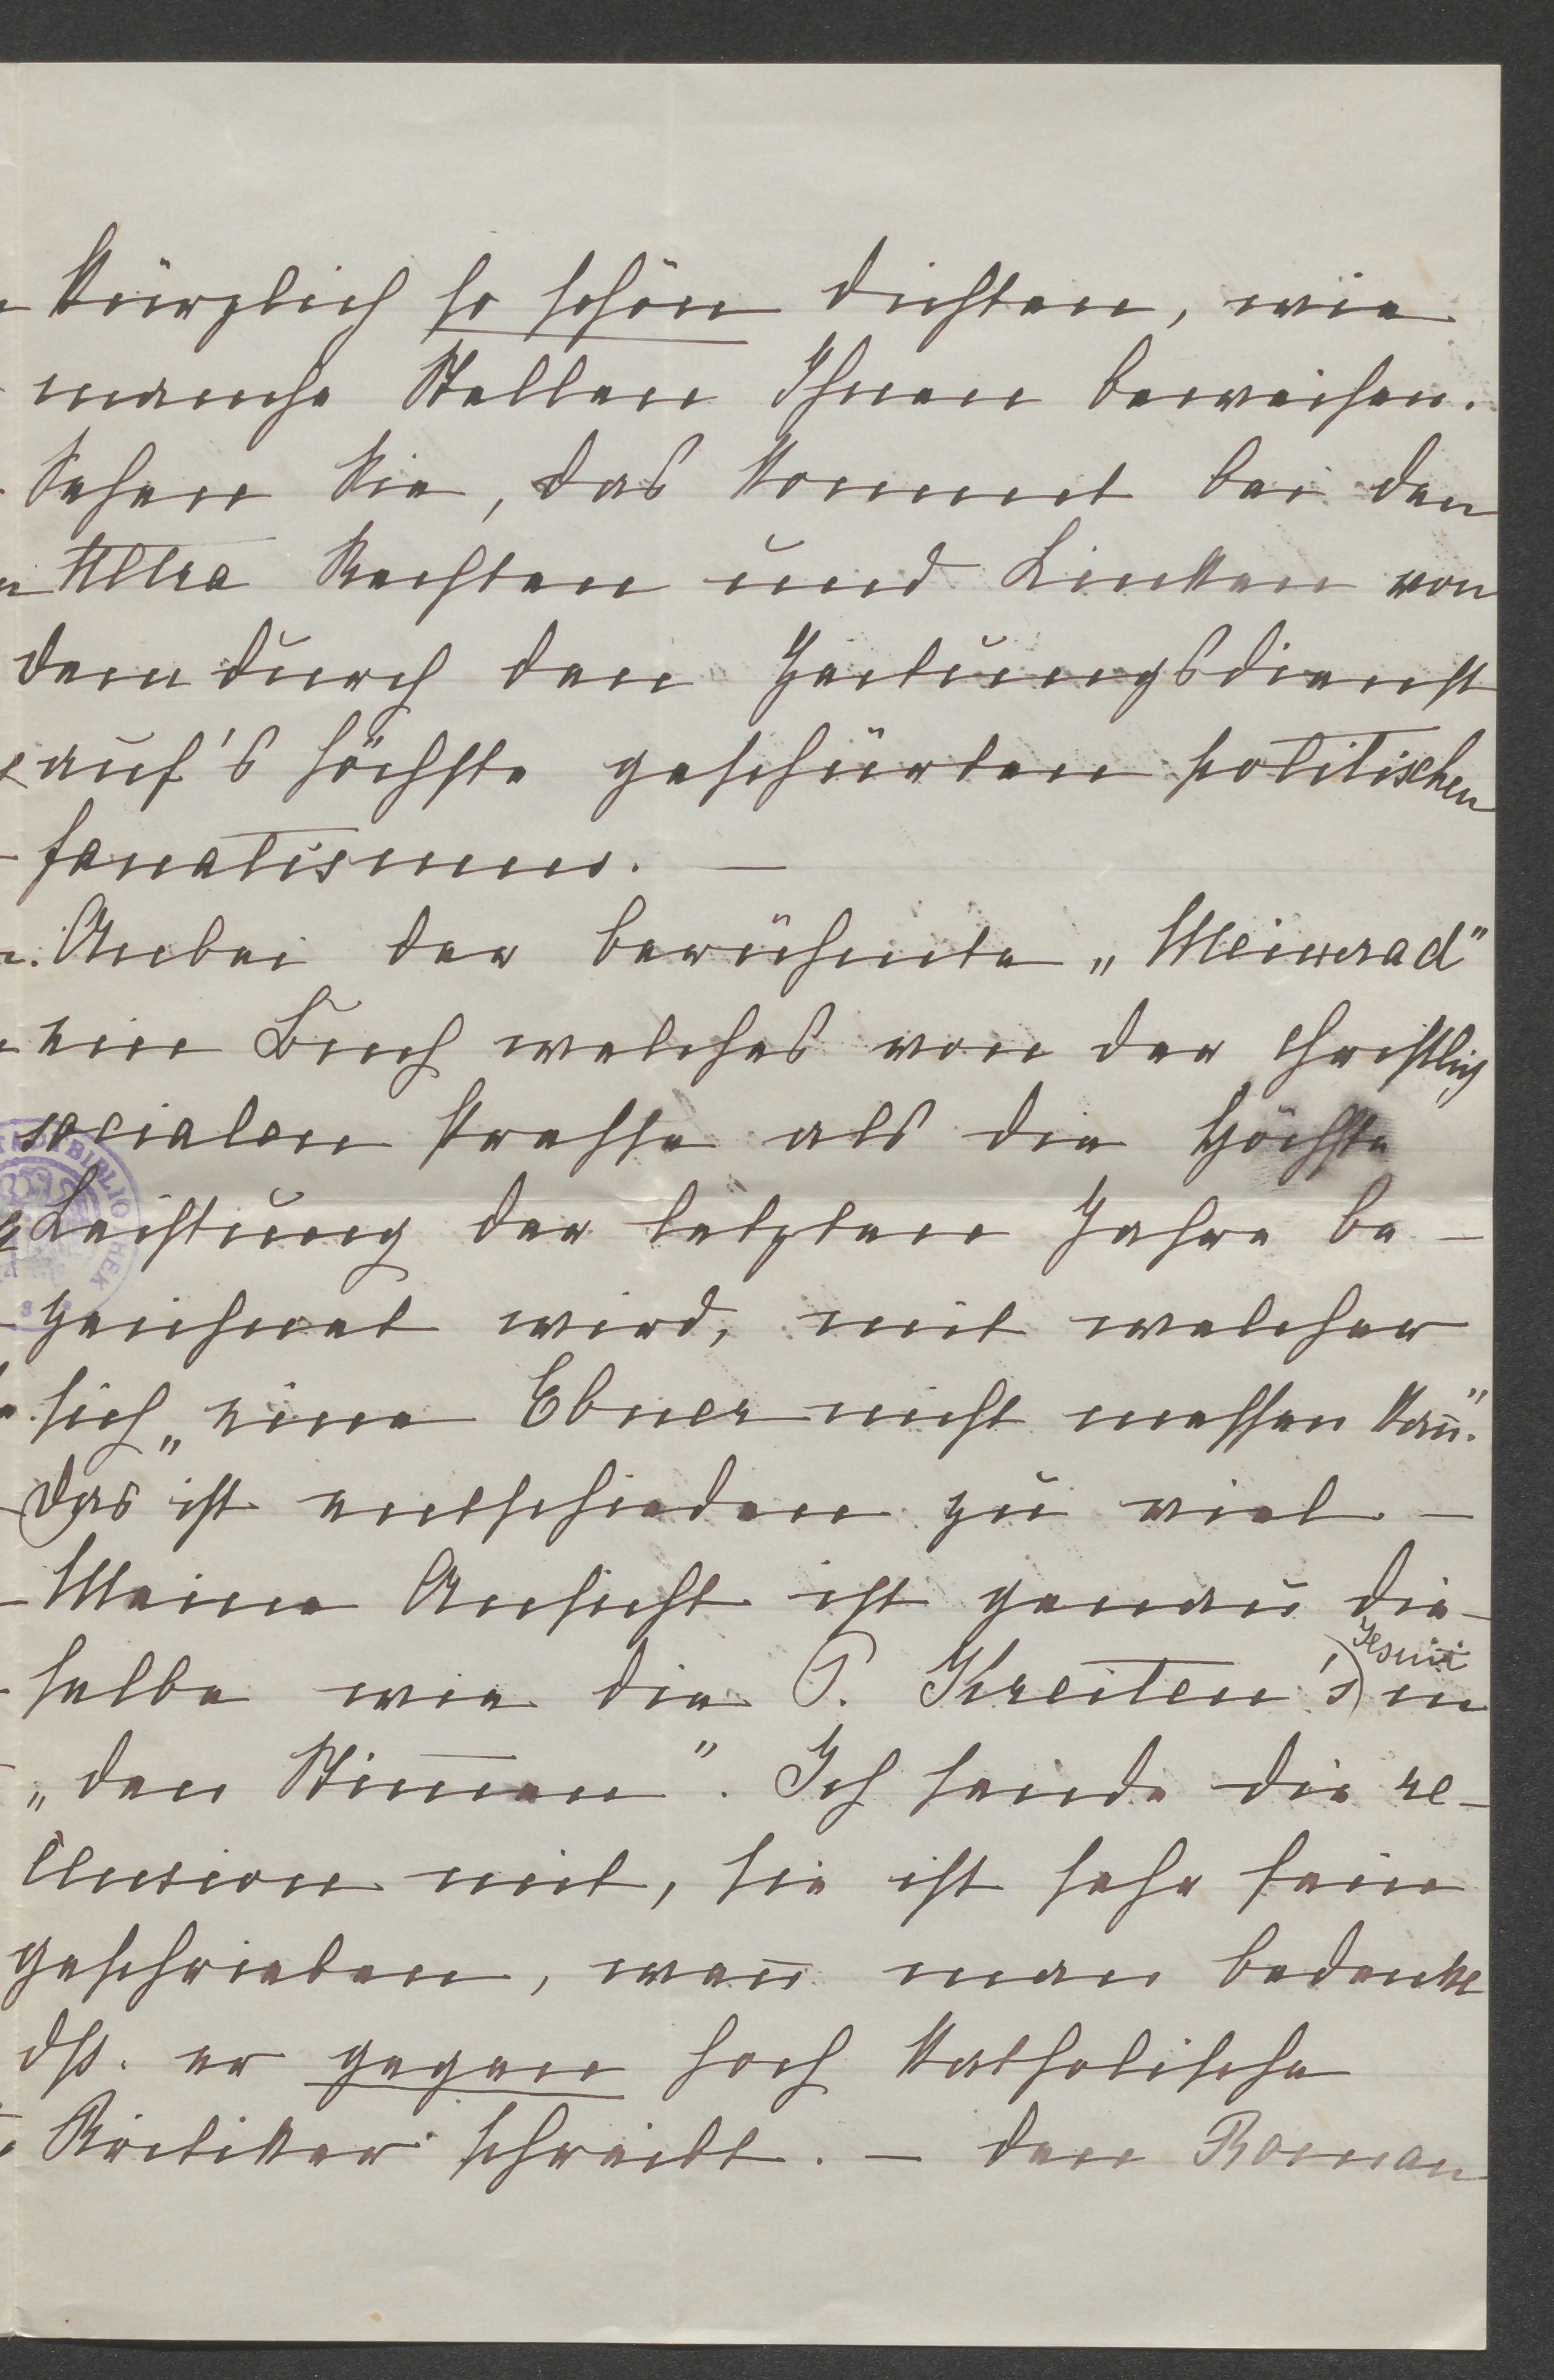 kürzlich so schön dichten, wie
manche Stellen Ihnen beweisen.
Sehen Sie, das kommt bei den
Ultra Rechten und Linken von
dem durch den Zeitungsdienst
auf's höchste geschürten politischen
fanatismus. —
Anbei der berühmte „Meinrad"
ein Buch welches von der christlich
socialen Presse als die höchste
Leistung der letzten Jahre be-
zeichnet wird, mit welcher
sich „eine Ebner nicht messen kan̄".
Das ist entschieden zu viel —
Meine Ansicht ist genau die-
selbe wie die P. Kreiten's) in
Jesuit
„den Stim̄en". Ich sende die re-
mit, sie ist sehr fein
geschrieben, wen̄ man bedenkt
dß. er gegen hoch katholische
Kritiker schreibt. — den Roman
BIBLIOTHEK